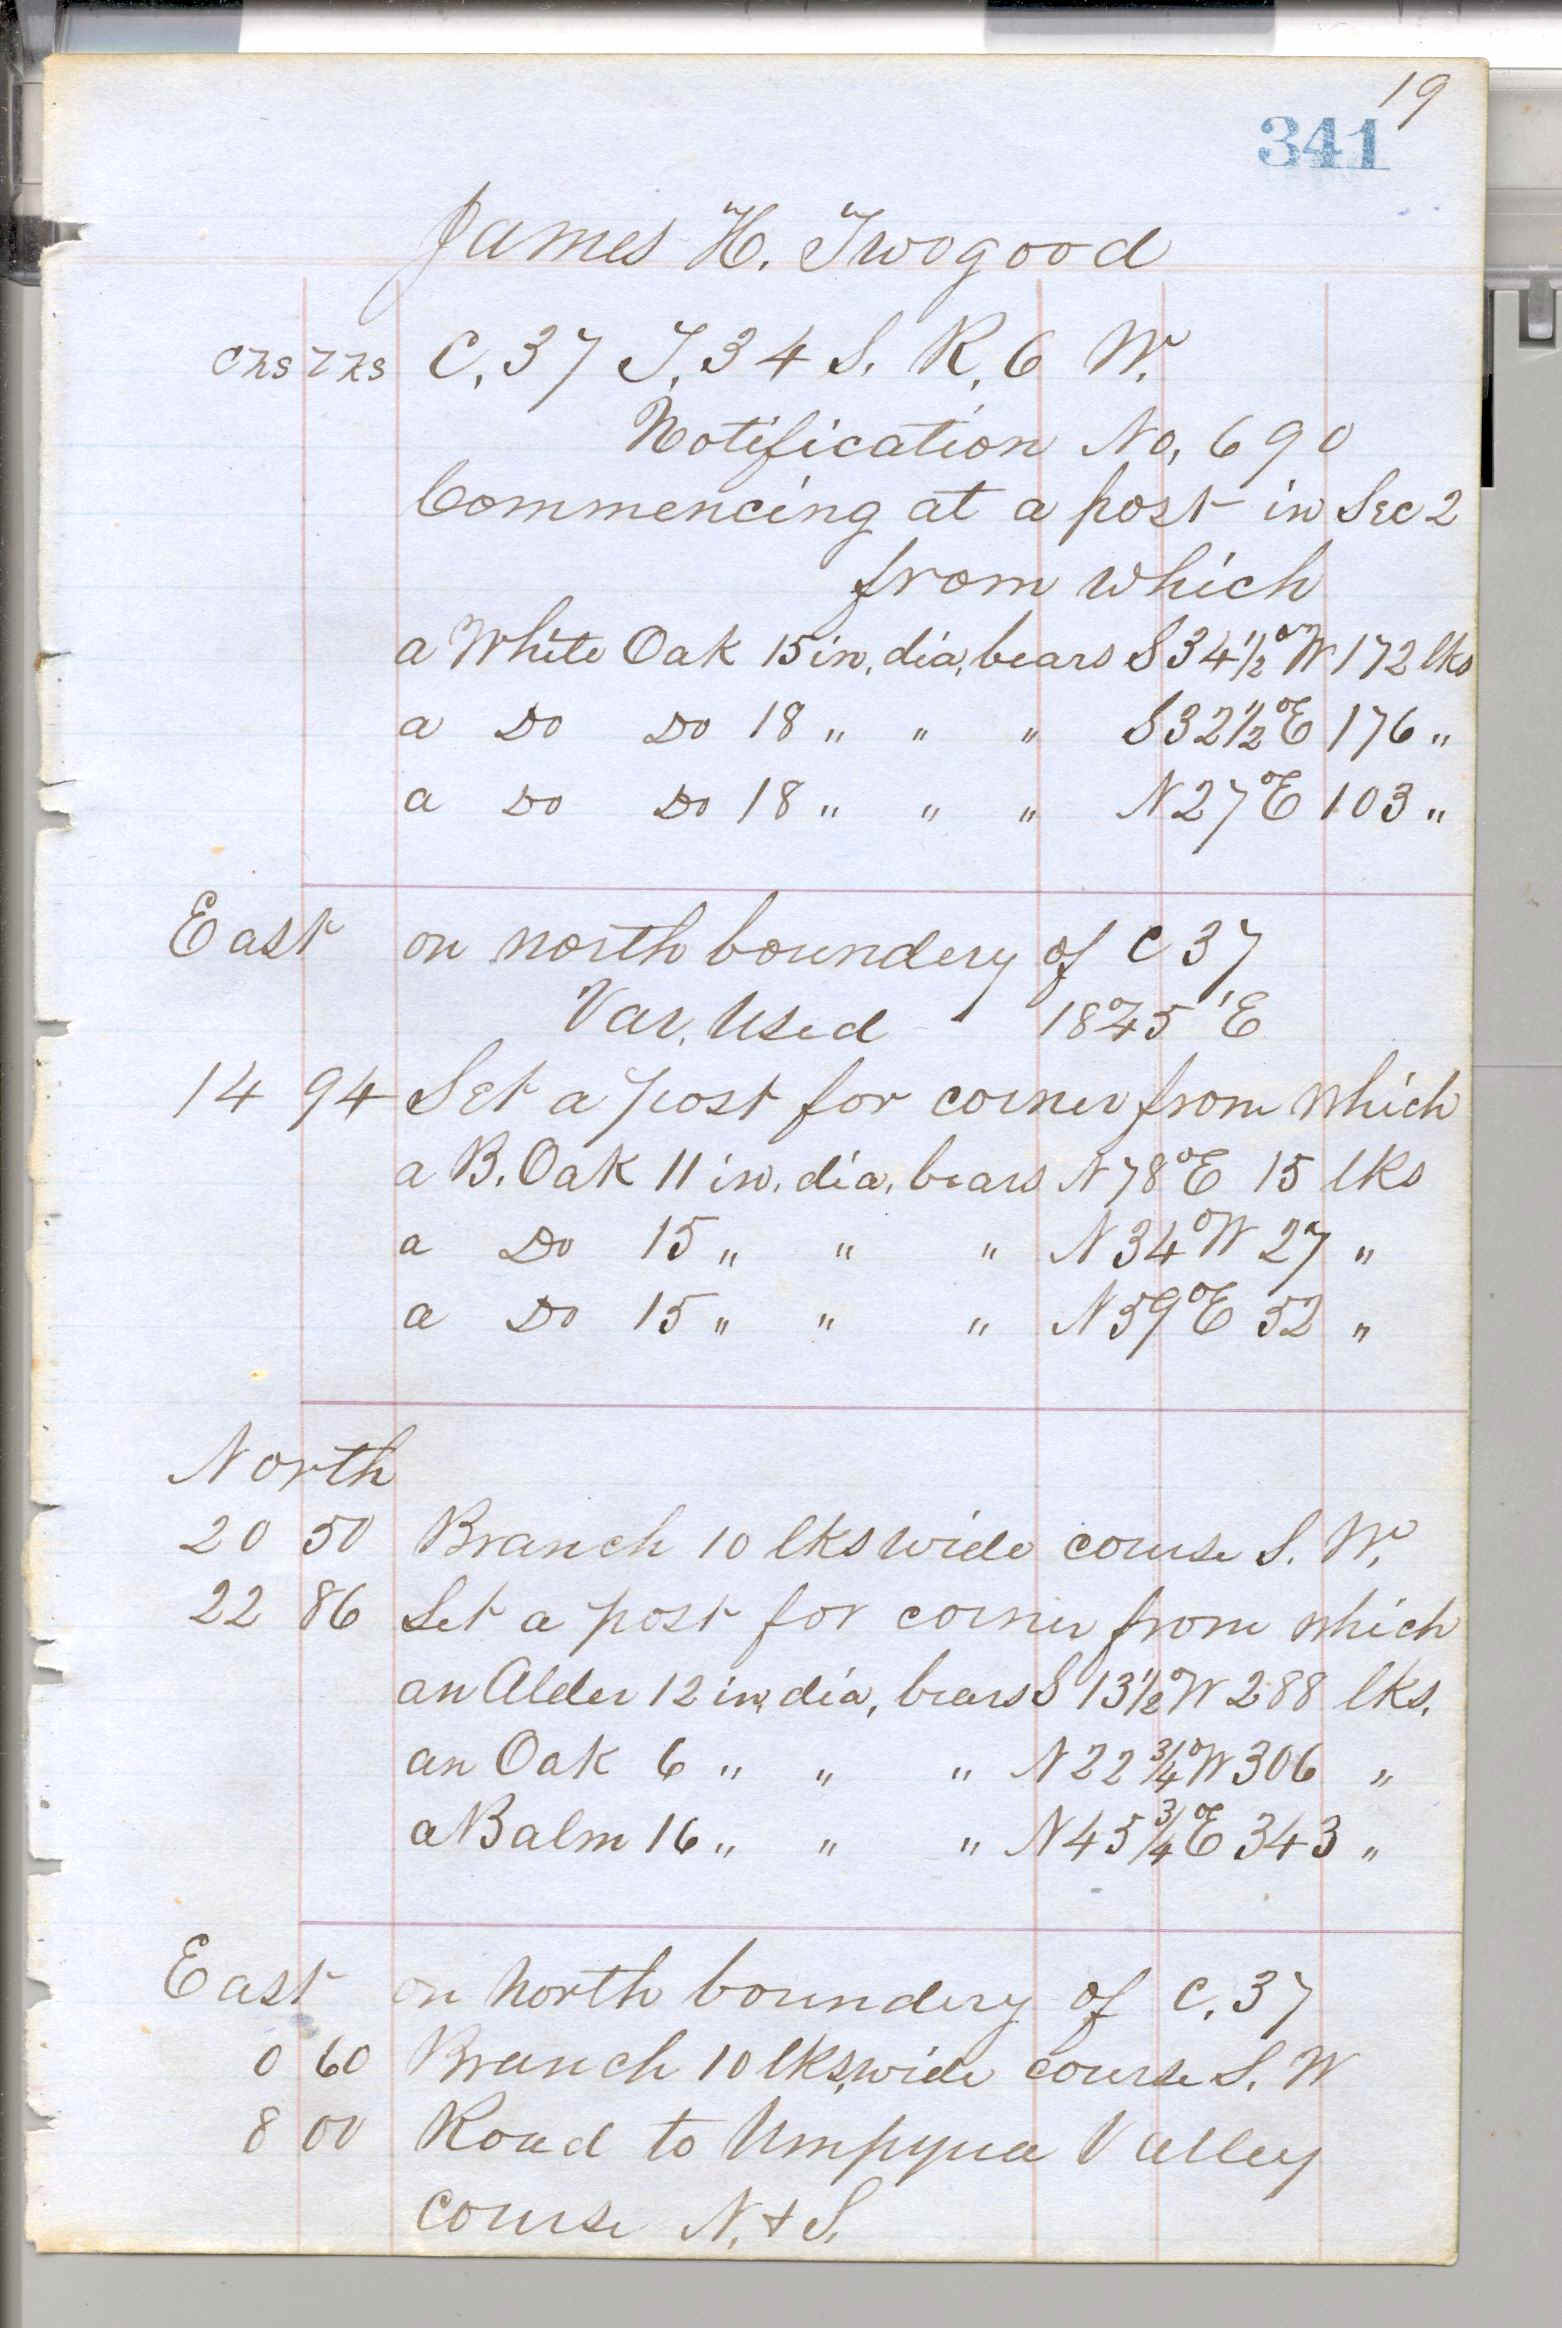 19
341
James H. Twogood
Chs Lks C. 37 T. 34 S. R. 6 W.
Notification No. 690
Commencing at a post in Sec 2
from which
a White Oak 15 in. dia. bears S 34 1/2° W 172 lks
a Do Do 18 " " " S 32 1/2° E 176 "
a Do Do 18 " " " N 27° E 103 "
East on north boundery of C 37
Var. Used 18° 45' E
14 94 Set a post for corner from which
a B. Oak 11 in. dia. bears N 78° E 15 lks
a Do 15 " " " N 34° W 27 "
a Do 15 " " " N 59° E 52 "
North
20 50 Branch 10 lks wide course S. W.
22 86 Set a post for corner from which
an Alder 12 in. dia. bears S 13 1/2° W 288 lks.
an Oak 6 " " " N 22 3/4° W 306 "
a Balm 16 " " " N 45 3/4° E 343 "
East on north boundery of C. 37
0 60 Branch 10 lks. wide course S. W
8 00 Road to Umpqua Valley
course N. & S.